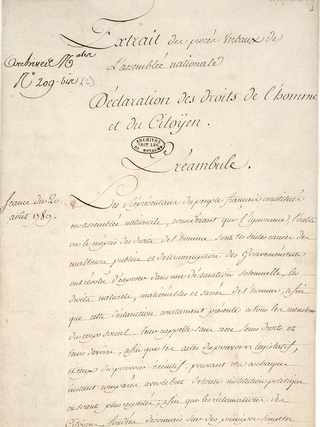 Extrait des procès Verbaux de
L'assemblée nationale
Archives
N° 209-bis (2)
Déclaration des droits de l'homme
et du Citoÿen.
ARCHIVES
DU ROYAUME
Préambule.
Séance du 20
août 1789.
Les Représentans du peuple français constitués
en assemblée nationale, considérant que l'ignorance, l'oubli
ou le mépris des droits de l'homme sont les seules causes des
malheurs publics et de la corruption des Gouvernemens
ont résolu d'exposer dans une déclaration solemnelle, les
droits naturels, inaliénables et sacrés de l'homme, afin
que cette déclaration constamment présente a tous les membres
du corps social, leur rappelle sans cesse leurs droits et
leurs devoirs, afin que les actes du pouvoir législatif,
et ceux du pouvoir exécutif, pouvant être a chaque
instant comparés avec le but de toute institution politique
en soient plus respectés; afin que les réclamations des
Citoyens, fondées désormais sur des principes simples